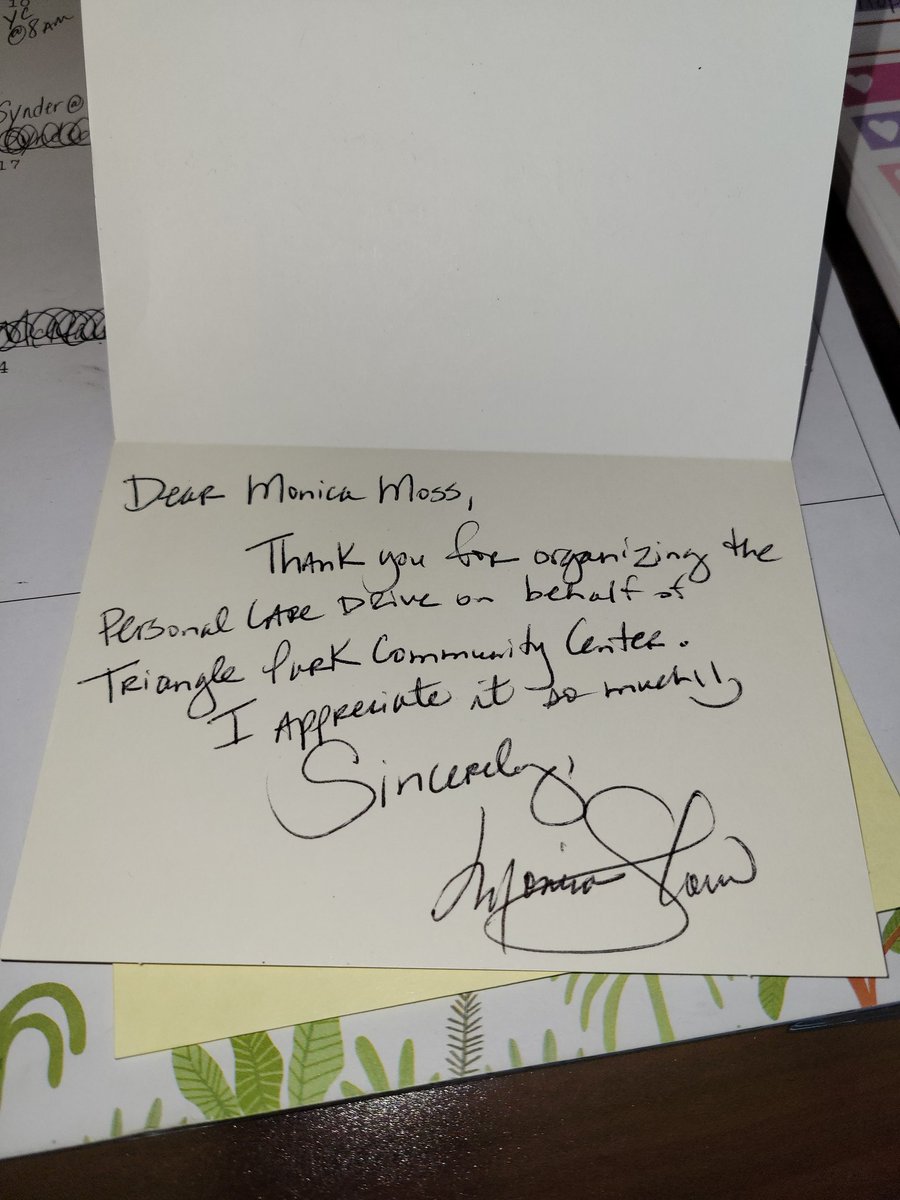 YC
@8AM
Synder@
17
4
Dear Monica Moss,
Thank you for organizing the
Personal Care Drive on behalf of
Triangle Park Community Center.
I Appreciate it so much!!
Sincerely,